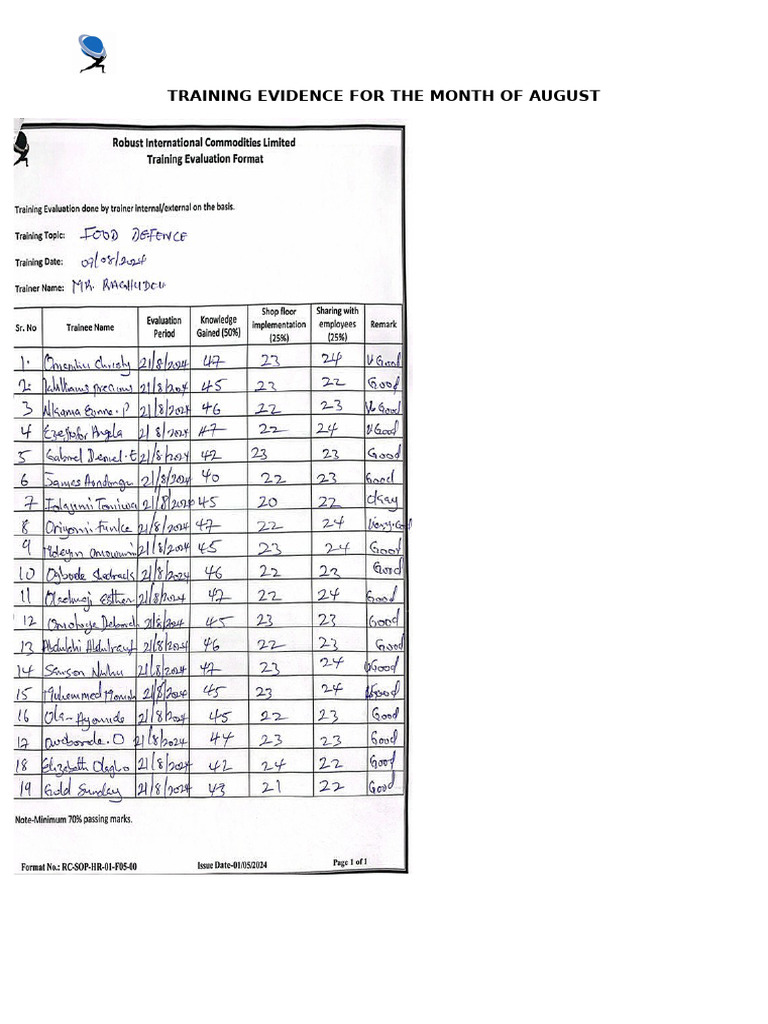 TRAINING EVIDENCE FOR THE MONTH OF AUGUST
Robust International Commodities Limited
Training Evaluation Format
Training Evaluation done by trainer internal/external on the basis.
Training Topic: FOOD DEFENCE
Training Date: 09/08/2024
Trainer Name: MR. RAGHUDEV
Sr. No Trainee Name Evaluation Period Knowledge Gained (50%) Shop floor implementation (25%) Sharing with employees (25%) Remark
1. Christy 21/8/2024 47 23 24 V Good
2. Williams Precious 21/8/2024 45 23 22 Good
3 Nkama Eunne. P 21/8/2024 46 22 23 V. Good
4 Ezeofor Angela 21/8/2024 47 22 24 V Good
5 Gabriel Daniel. E 21/8/2024 42 23 23 Good
6 James 21/8/2024 40 22 23 Good
7 Tomiwa 21/8/2024 45 20 22 Okay
8 Oriyomi Funke 21/8/2024 47 22 24 Very. Good
9 Omowumi 21/8/2024 45 23 24 Good
10 Ogbode Shadrach 21/8/2024 46 22 23 Good
11 Esther 21/8/2024 42 22 24 Good
12 Deborah 21/8/2024 45 23 23 Good
13 Abdulahi Abdulrauf 21/8/2024 46 22 23 Good
14 Samson Nuhu 21/8/2024 47 23 24 V Good
15 Muhammed 21/8/2024 45 23 24 V Good
16 Ola-Ayomide 21/8/2024 45 22 23 Good
17 O 21/8/2024 44 23 23 Good
18 Elizabeth Olagbo 21/8/2024 42 24 22 Good
19 Gold Sunday 21/8/2024 43 21 22 Good
Note-Minimum 70% passing marks.
Format No.: RC-SOP-HR-01-F05-00 Issue Date-01/05/2024 Page 1 of 1